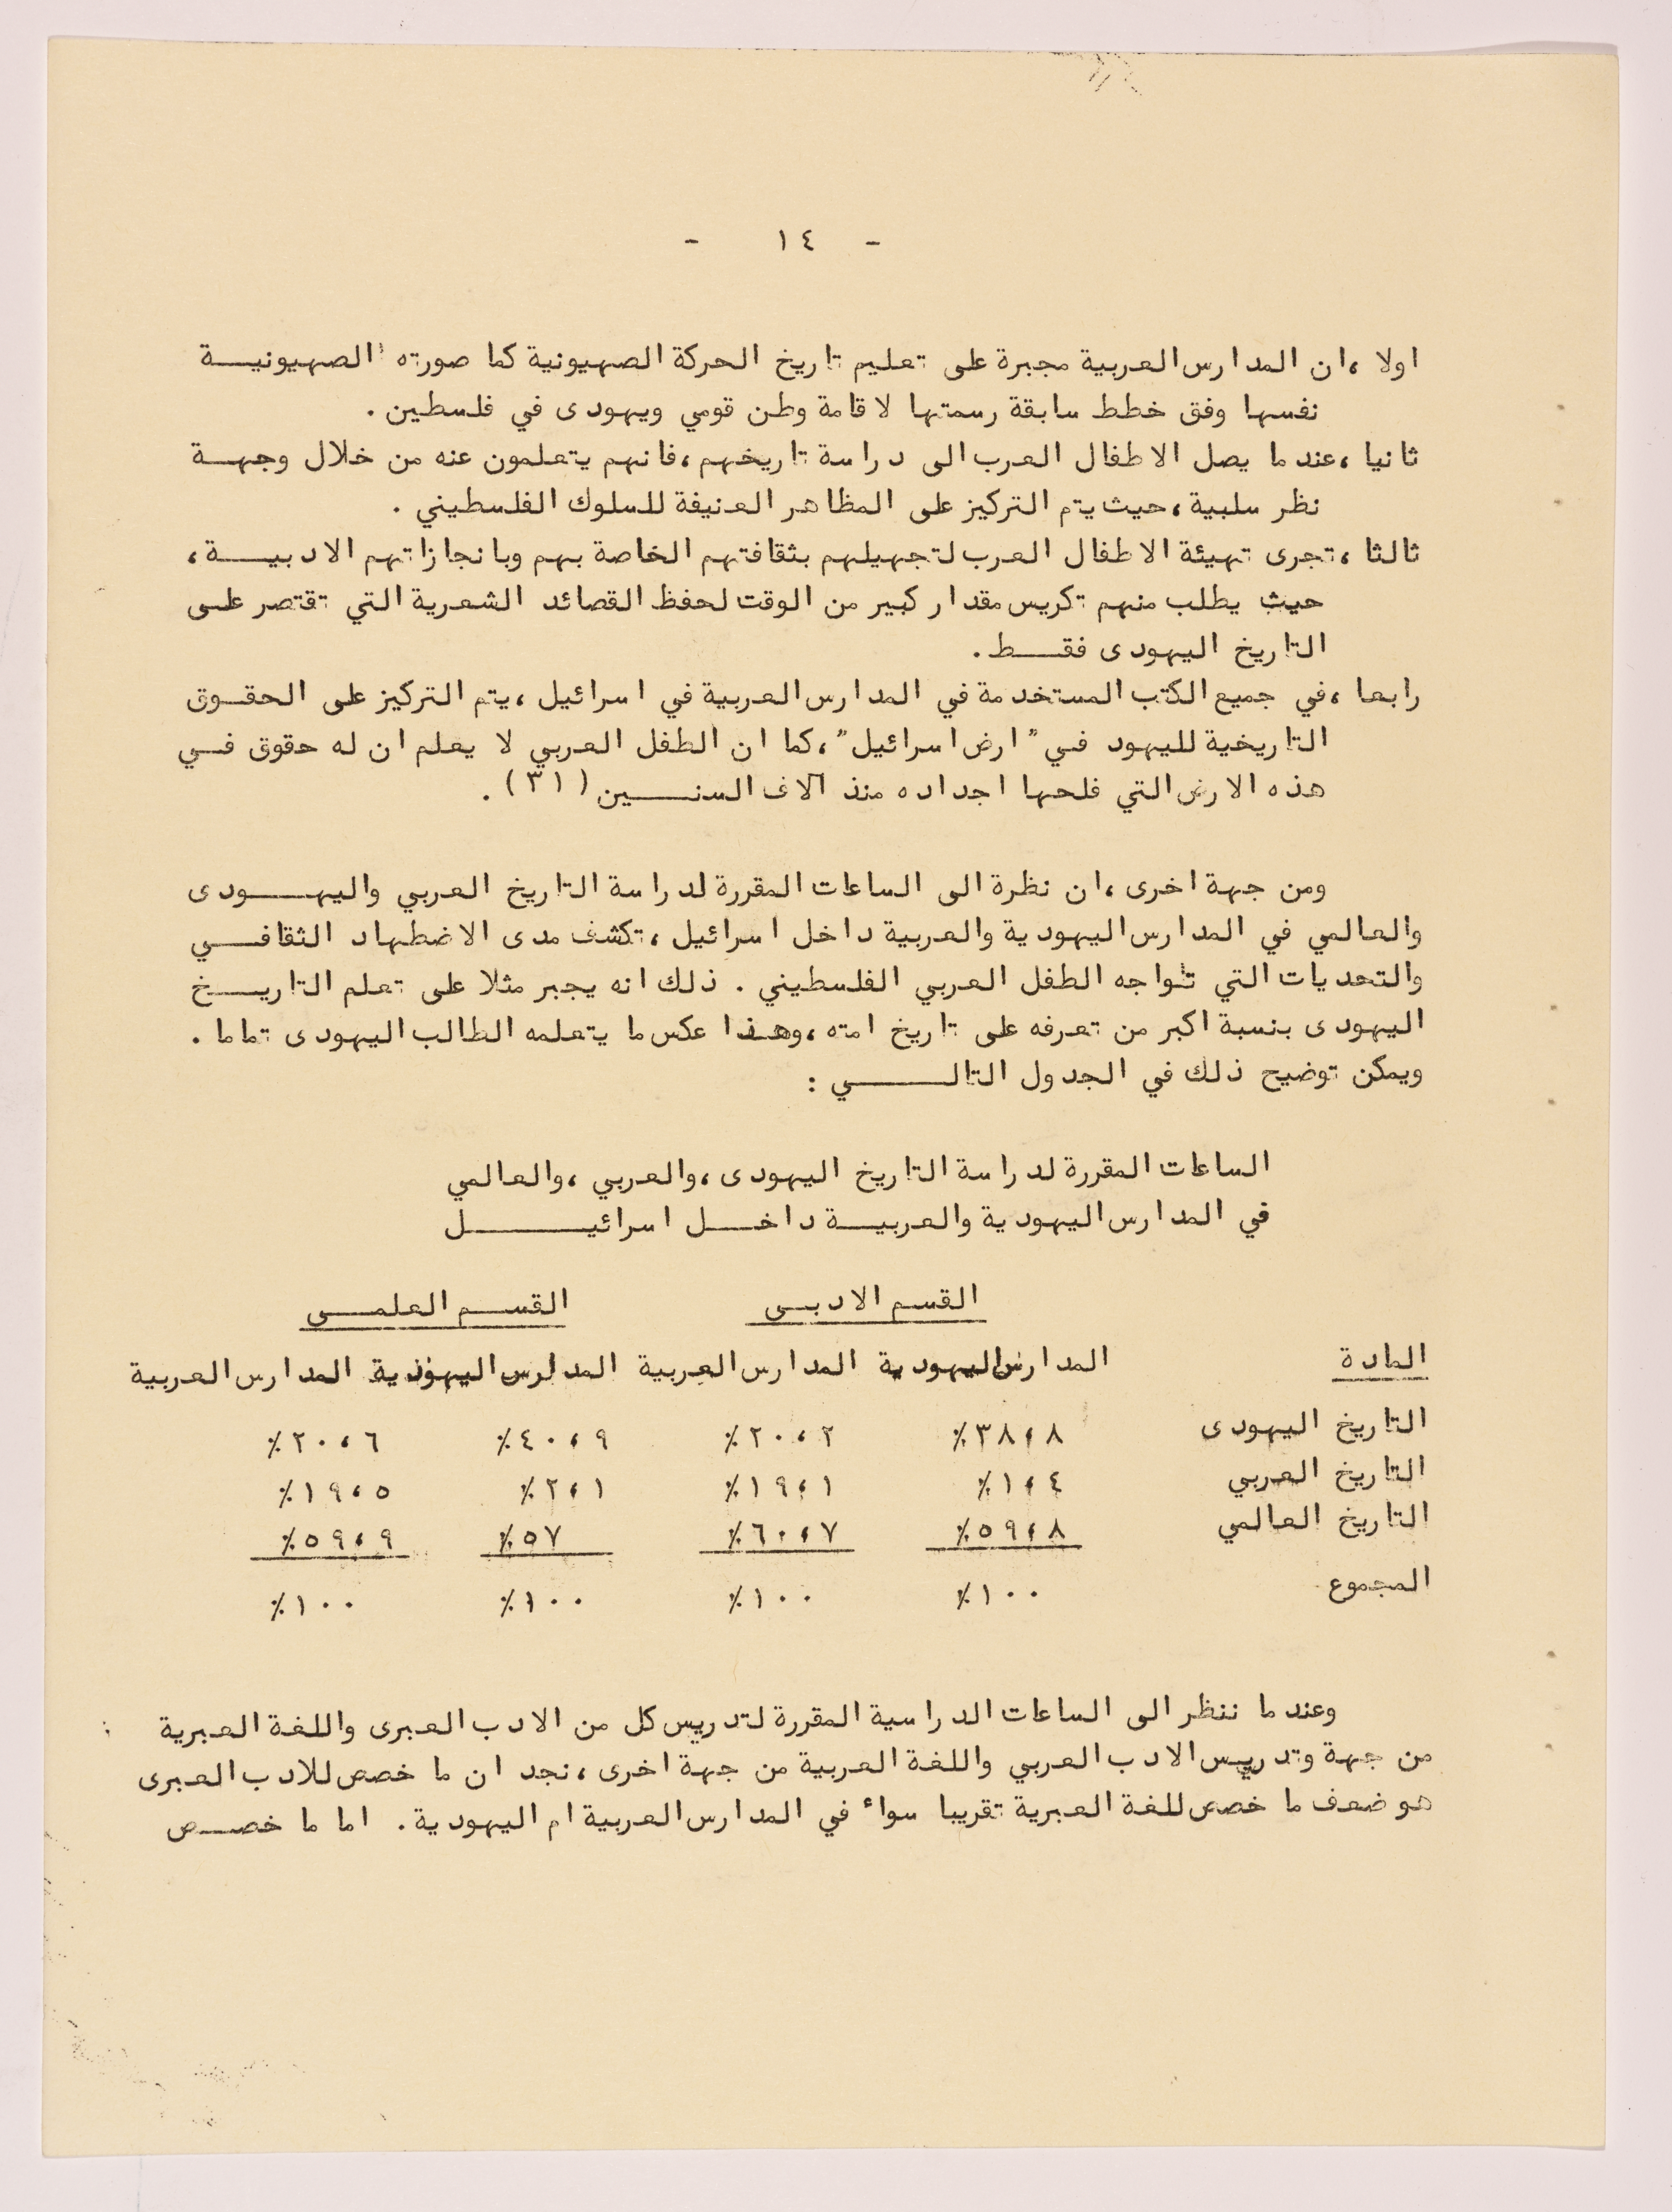 - ١٤ -
اولا ،ان المدارس العربية مجبرة على تعليم تاريخ الحركة الصهيونية كما صورته الصهيونيـــة
نفسها وفق خطط سابقة رسمتها لاقامة وطن قومي ويهودى في فلسطين .
ثانيا ،عندما يصل الاطفال العرب الى دراسة تاريخهم ،فانهم يتعلمون عنه من خلال وجهـــة
نظر سلبية ،حيث يتم التركيز على المظاهر العنيفة للسلوك الفلسطيني .
ثالثا ،تجرى تهيئة الاطفال العرب لتجهيلهم بثقافتهم الخاصة بهم وبانجازاتهم الادبيـــة ،
حيث يطلب منهم تكريس مقدار كبير من الوقت لحفظ القصائد الشعرية التي تقتصر علـى
التاريخ اليهودى فقـــط .
رابعا ،في جميع الكتب المستخدمة في المدارس العربية في اسرائيل ،يتم التركيز على الحقــوق
التاريخية لليهود فـي "ارض اسرائيل" ،كما ان الطفل العربي لا يعلم ان له حقوق فــي
هذه الارض التي فلحها اجداده منذ آلاف السنـــــين (٣١) .
ومن جهة اخرى ،ان نظرة الى الساعات المقررة لدراسة التاريخ العربي واليهـــــودى
والعالمي في المدارس اليهودية والعربية داخل اسرائيل ،تكشف مدى الاضطهاد الثقافـــي
والتحديات التي تواجه الطفل العربي الفلسطيني . ذلك انه يجبر مثلا على تعلم التاريـــخ
اليهودى بنسبة اكبر من تعرفه على تاريخ امته ،وهذا عكس ما يتعلمه الطالب اليهودى تماما .
ويمكن توضيح ذلك في الجدول التالـــــــي :
الساعات المقررة لدراسة التاريخ اليهودى ،والعربي ،والعالمي
في المدارس اليهودية والعربيـــة داخـــل اسرائيـــــــل
القسم الادبــى القســـم العلمـــى
المادة المدارس اليهودية المدارس العربية المدارس اليهودية المدارس العربية
التاريخ اليهودى ٣٨،٨٪ ٢٠،٢٪ ٤٠،٩٪ ٢٠،٦٪
التاريخ العربي ١،٤٪ ١٩،١٪ ٢،١٪ ١٩،٥٪
التاريخ العالمي ٥٩،٨٪ ٦٠،٧٪ ٥٧٪ ٥٩،٩٪
المجموع ١٠٠٪ ١٠٠٪ ١٠٠٪ ١٠٠٪
وعندما ننظر الى الساعات الدراسية المقررة لتدريس كل من الادب العبرى واللغة العبرية
من جهة وتدريس الادب العربي واللغة العربية من جهة اخرى ،نجد ان ما خصص للادب العبرى
هو ضعف ما خصص للغة العبرية تقريبا سواء في المدارس العربية ام اليهودية . اما ما خصــص